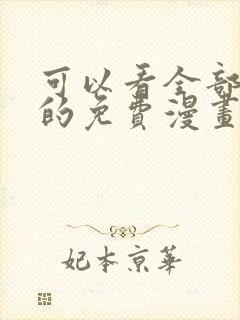 可以看全部
的免費漫畫
妃本京華